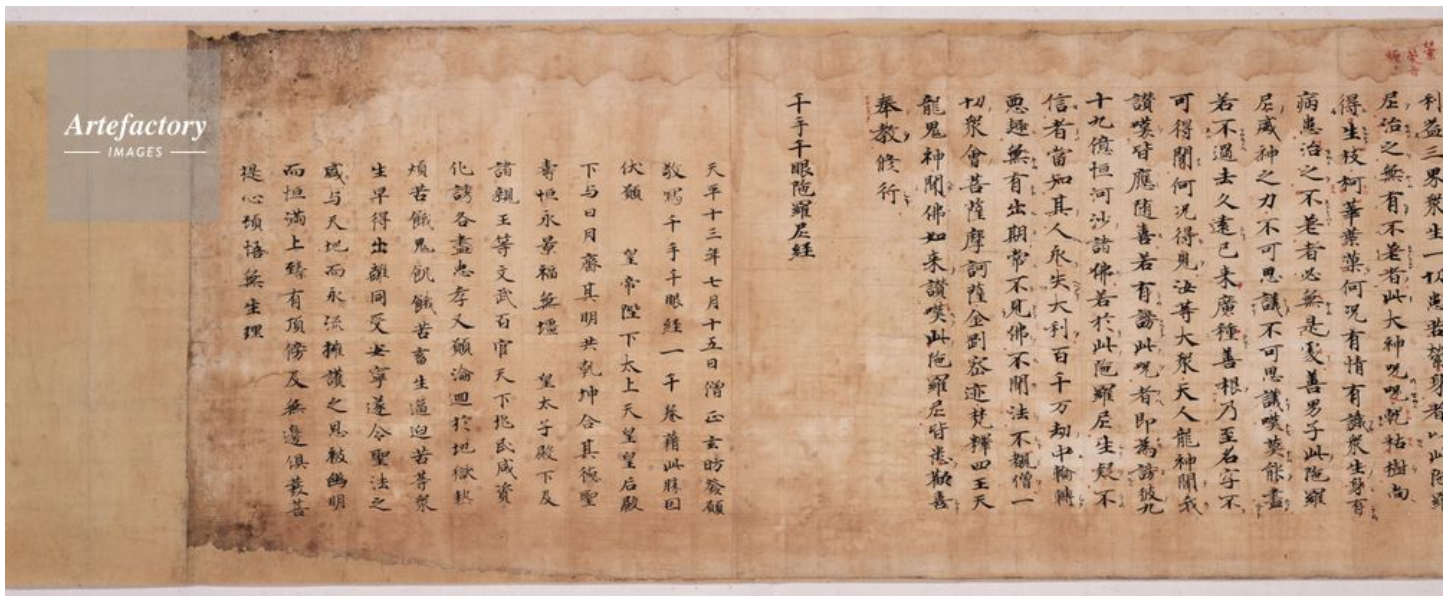 利益三界衆生一切患苦縈身者以此陁羅
尼治之無有不差者此大神呪呪乾枯樹尚
得生枝柯華葉菓何況有情有識衆生身有
病患治之不差者必無是處善男子此陁羅
尼威神之力不可思議不可思議嘆莫能盡
若不過去久遠已来廣種善根乃至名字不
可得聞何況得見汝等大衆天人龍神聞我
讃嘆皆應随喜若有謗此呪者即為謗彼九
十九億恒河沙諸佛若於此陁羅尼生疑不
信者當知其人永失大利百千万劫中輪轉
悪趣無有出期常不見佛不聞法不覩僧一
切衆會菩薩摩訶薩金剛密迹梵釋四王天
龍鬼神聞佛如来讃嘆此陁羅尼皆悉歡喜
奉教修行
千手千眼陁羅尼経
天平十三年七月十五日僧正玄昉發願
敬寫千手千眼経一千巻藉此勝因
伏願 皇帝陛下太上天皇皇后殿
下与日月齊其明共乾坤合其徳聖
壽恒永景福無壃 皇太子殿下及
諸親王等文武百官天下兆民咸資
化誘各盡忠孝又願淪迴於地獄熱
煩苦餓鬼飢餓苦畜生逼迫苦等衆
生早得出離同受安寧遂令聖法之
盛与天地而永流擁護之恩被幽明
而恒満上臻有頂傍及無邊俱發菩
提心頓悟無生理
Artefactory
IMAGES